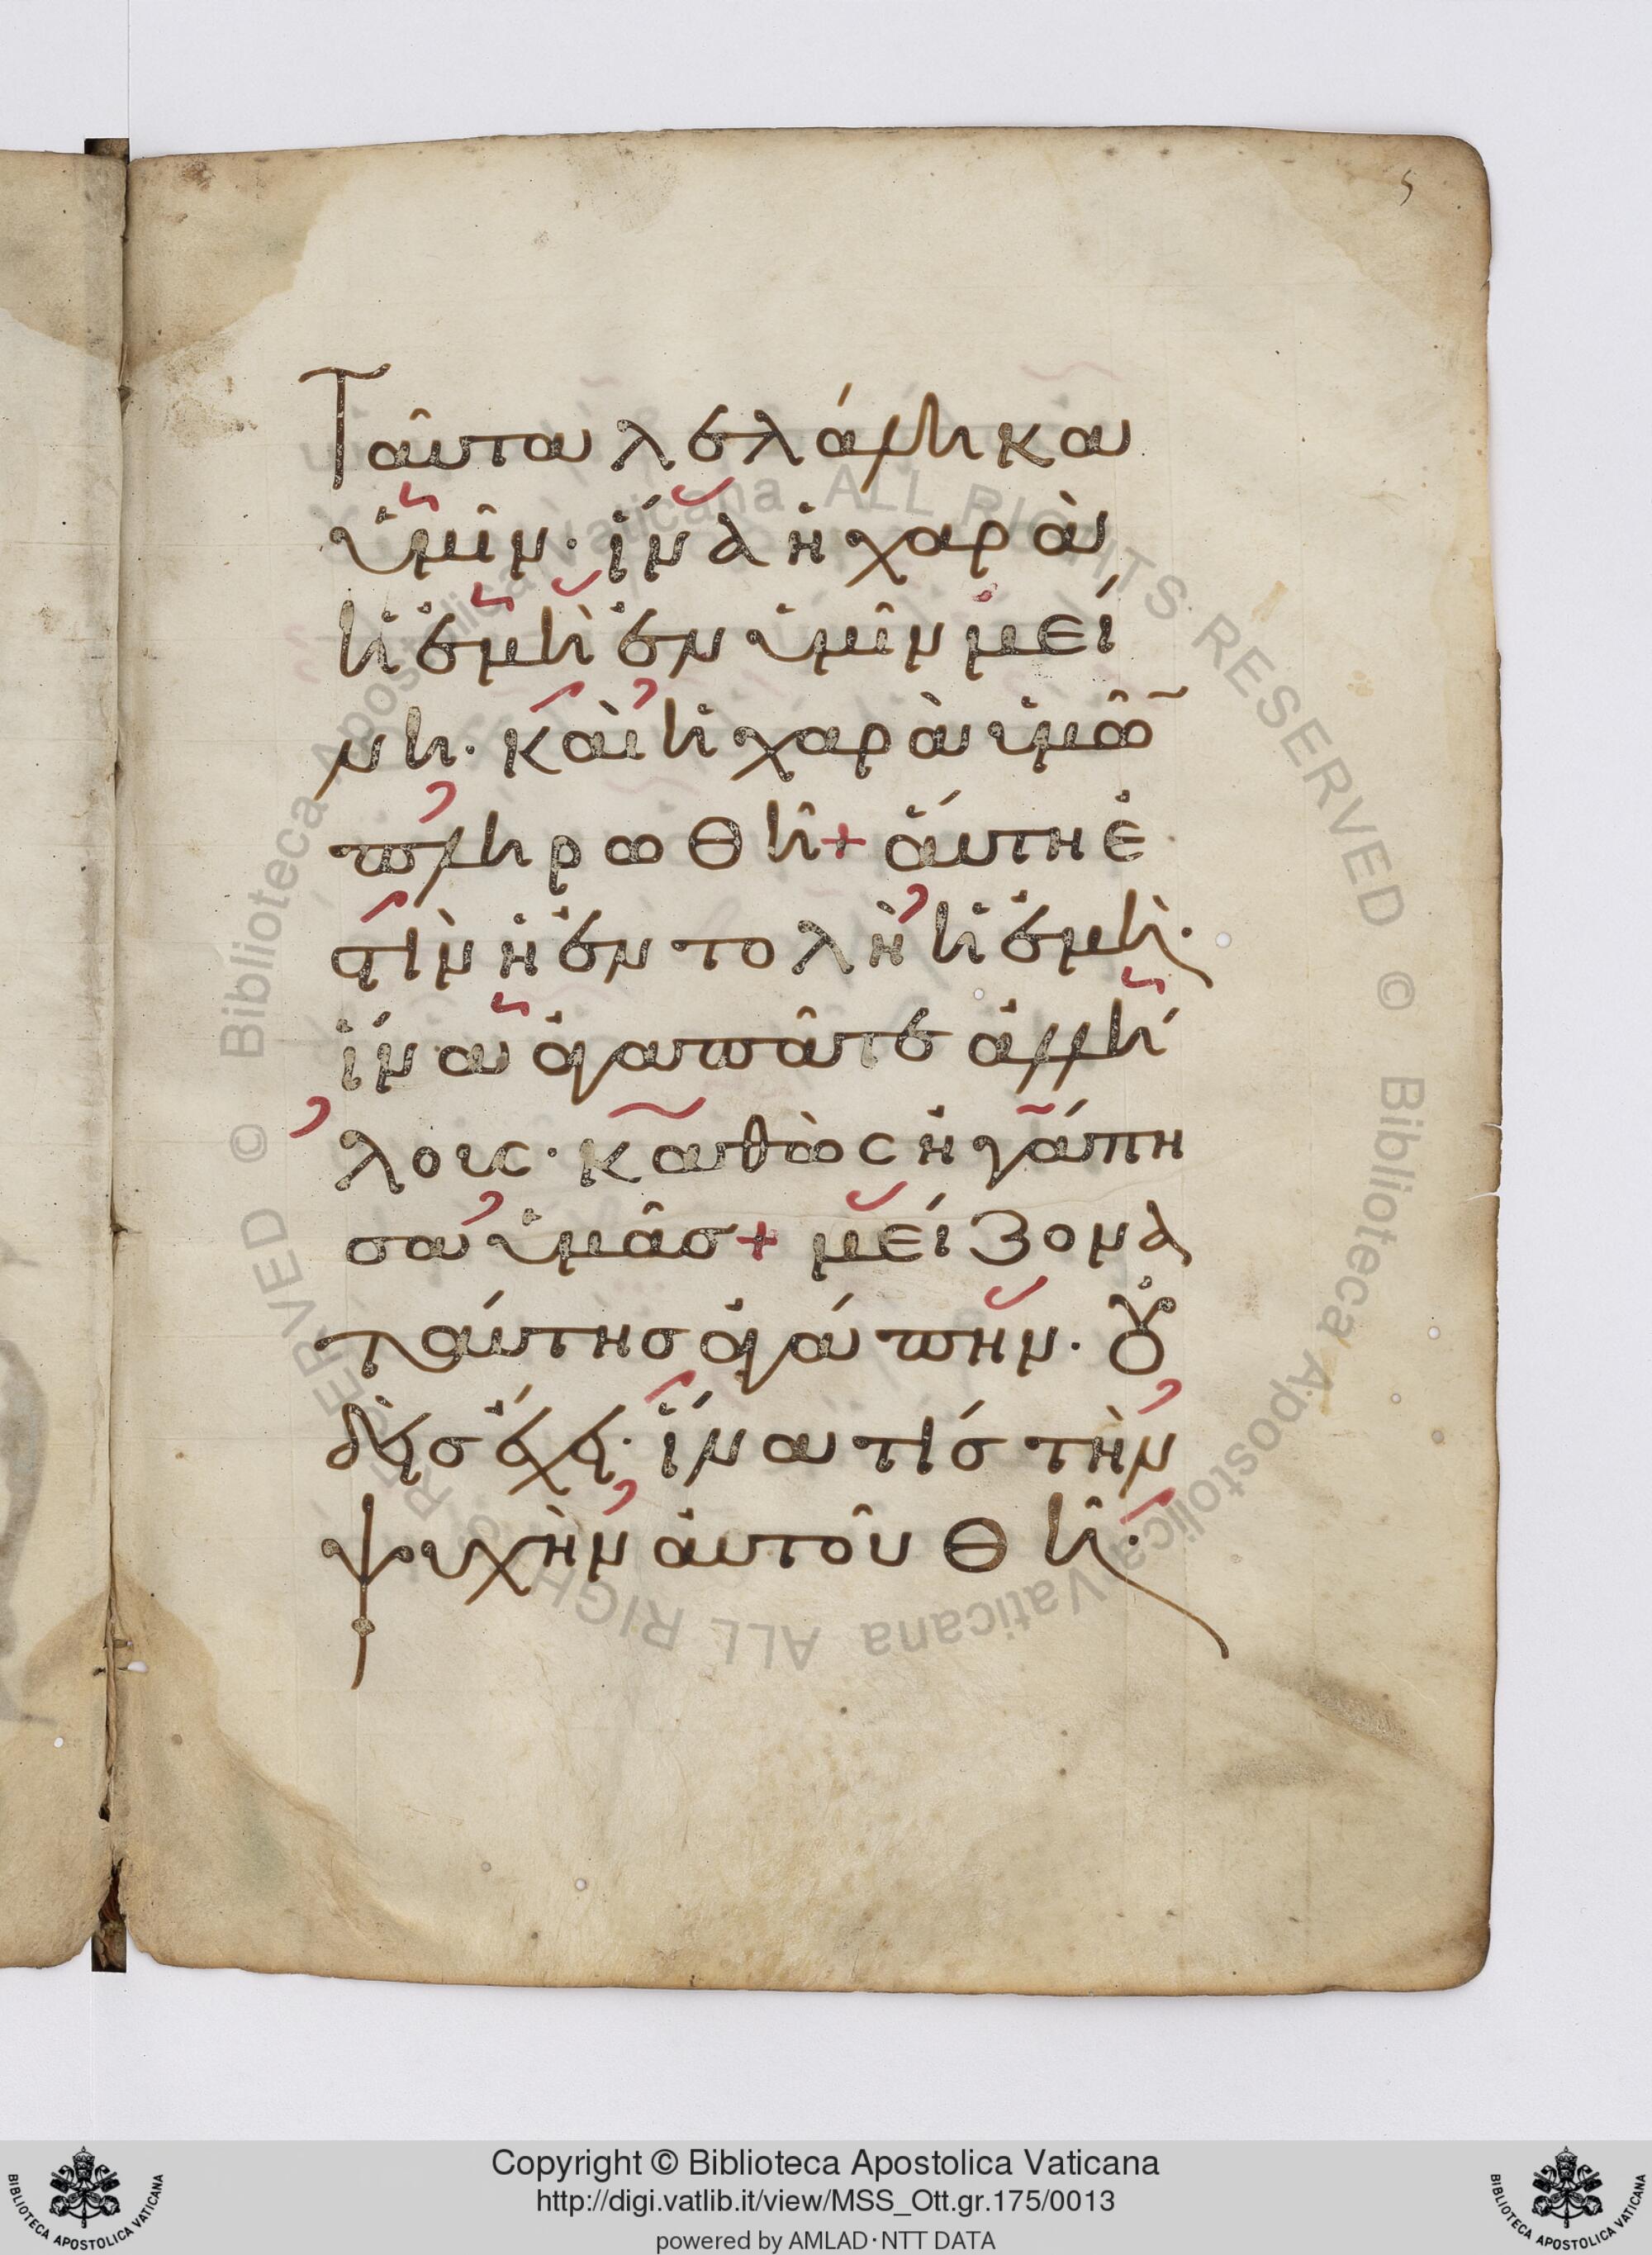 5
Ταῦτα λελάληκα
ὑμῖν· ἵνα ἡ χαρὰ
ἡ ἐμὴ ἐν ὑμῖν μεί
νη· καὶ ἡ χαρὰ ὑμῶ̃
πληρωθῆ + ἄυτη ἐ
στὶν ἡ ἐντολὴ ἡ ἐμὴ·
ἵνα ἀγαπᾶτε ἀλλή
λους· καθὼς ἠγάπη
σα ὑμᾶς + μείζονα
ταύτης ἀγάπην· ὀυ
δεὶς ἔχει· ἵνα τίς τὴν
ψυχὴν ἀυτοῦ θῆ·
Biblioteca Apostolica Vaticana ALL RIGHTS RESERVED © Biblioteca Apostolica Vaticana ALL RIGHTS RESERVED ©
BIBLIOTECA APOSTOLICA VATICANA
Copyright © Biblioteca Apostolica Vaticana
http://digi.vatlib.it/view/MSS_Ott.gr.175/0013
powered by AMLAD·NTT DATA
BIBLIOTECA APOSTOLICA VATICANA